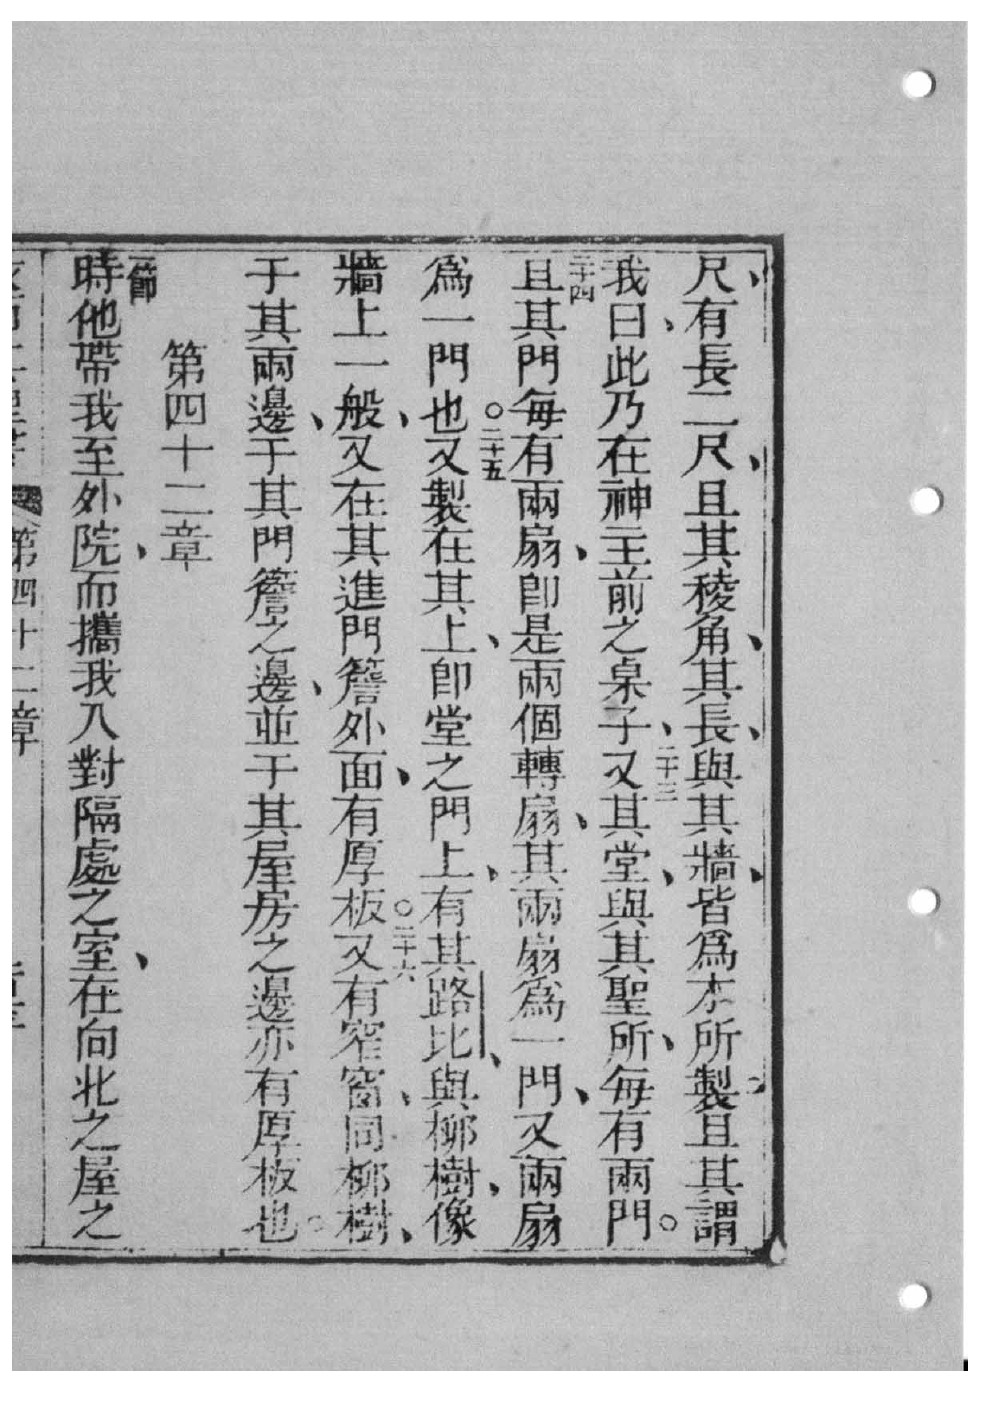 尺、有長二尺、且其稜角、其長、與其牆、皆爲木所製、且其謂
我曰、此乃在神主前之桌子、二十三又其堂、與其聖所、每有兩門。
二十四且其門每有兩扇、卽是兩個轉扇、其兩扇爲一門、又兩扇
爲一門也。二十五又製在其上、卽堂之門上、有其路比、與柳樹、像
牆上一般、又在其進門簷外面、有厚板。二十六又有窄窗、同柳樹、
于其兩邊、于其門簷之邊、並于其屋房之邊亦有厚板也。
第四十二章
一節時他帶我至外院、而攜我入對隔處之室、在向北之屋之
第四十二章